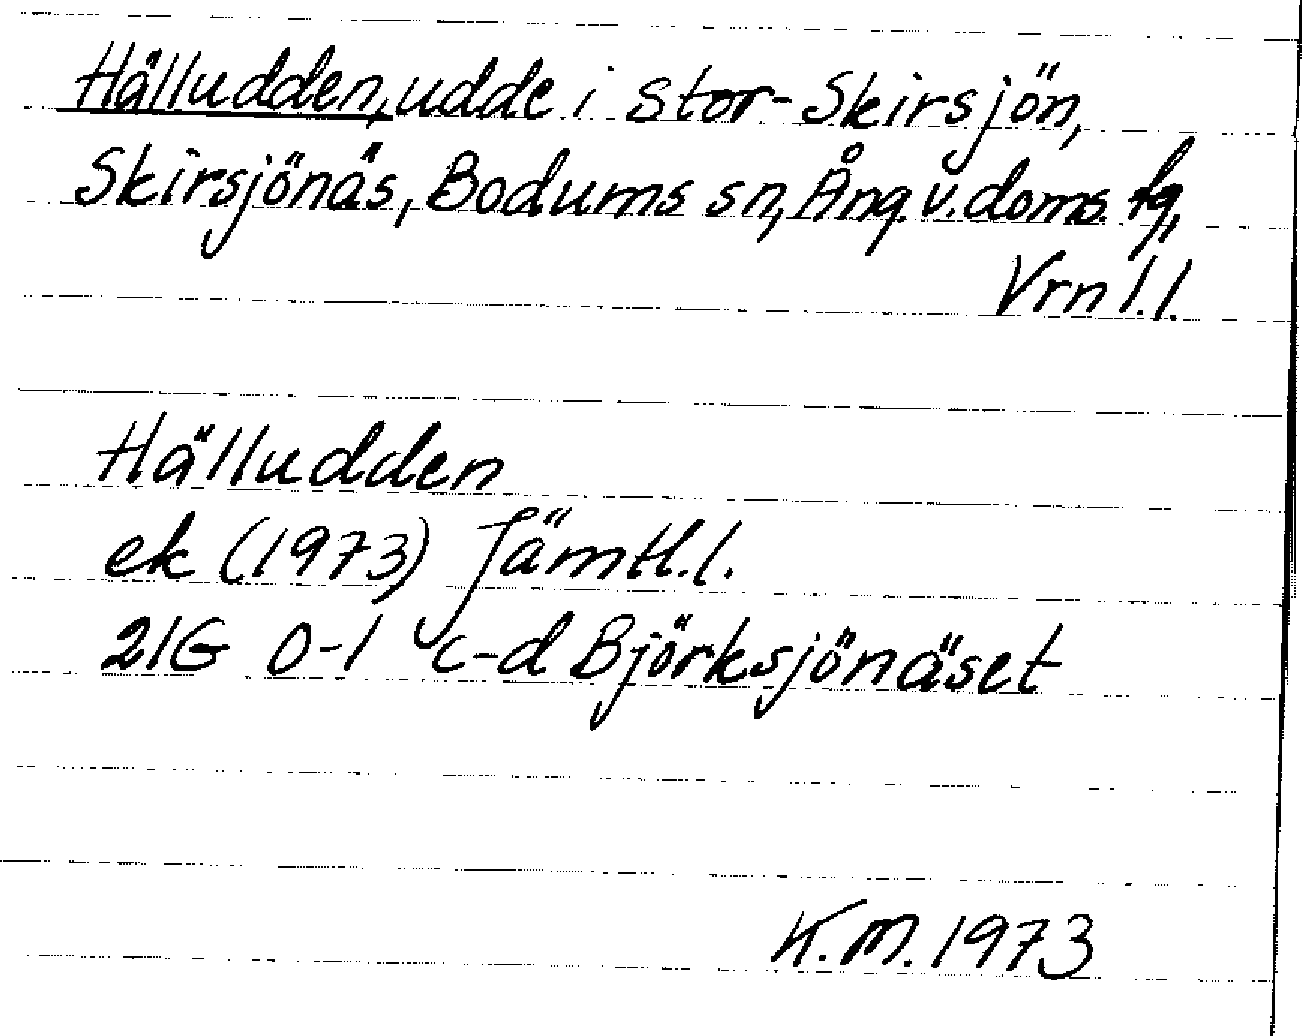 Hälludden, udde i Stor-Skirsjön,
Skirsjönäs, Bodums sn, Ång. v. doms. fg,
Vrn l.l.
Hälludden
ek (1973) Jämtl. l.
21G 0-1 c-d Björksjönäset
K.M. 1973